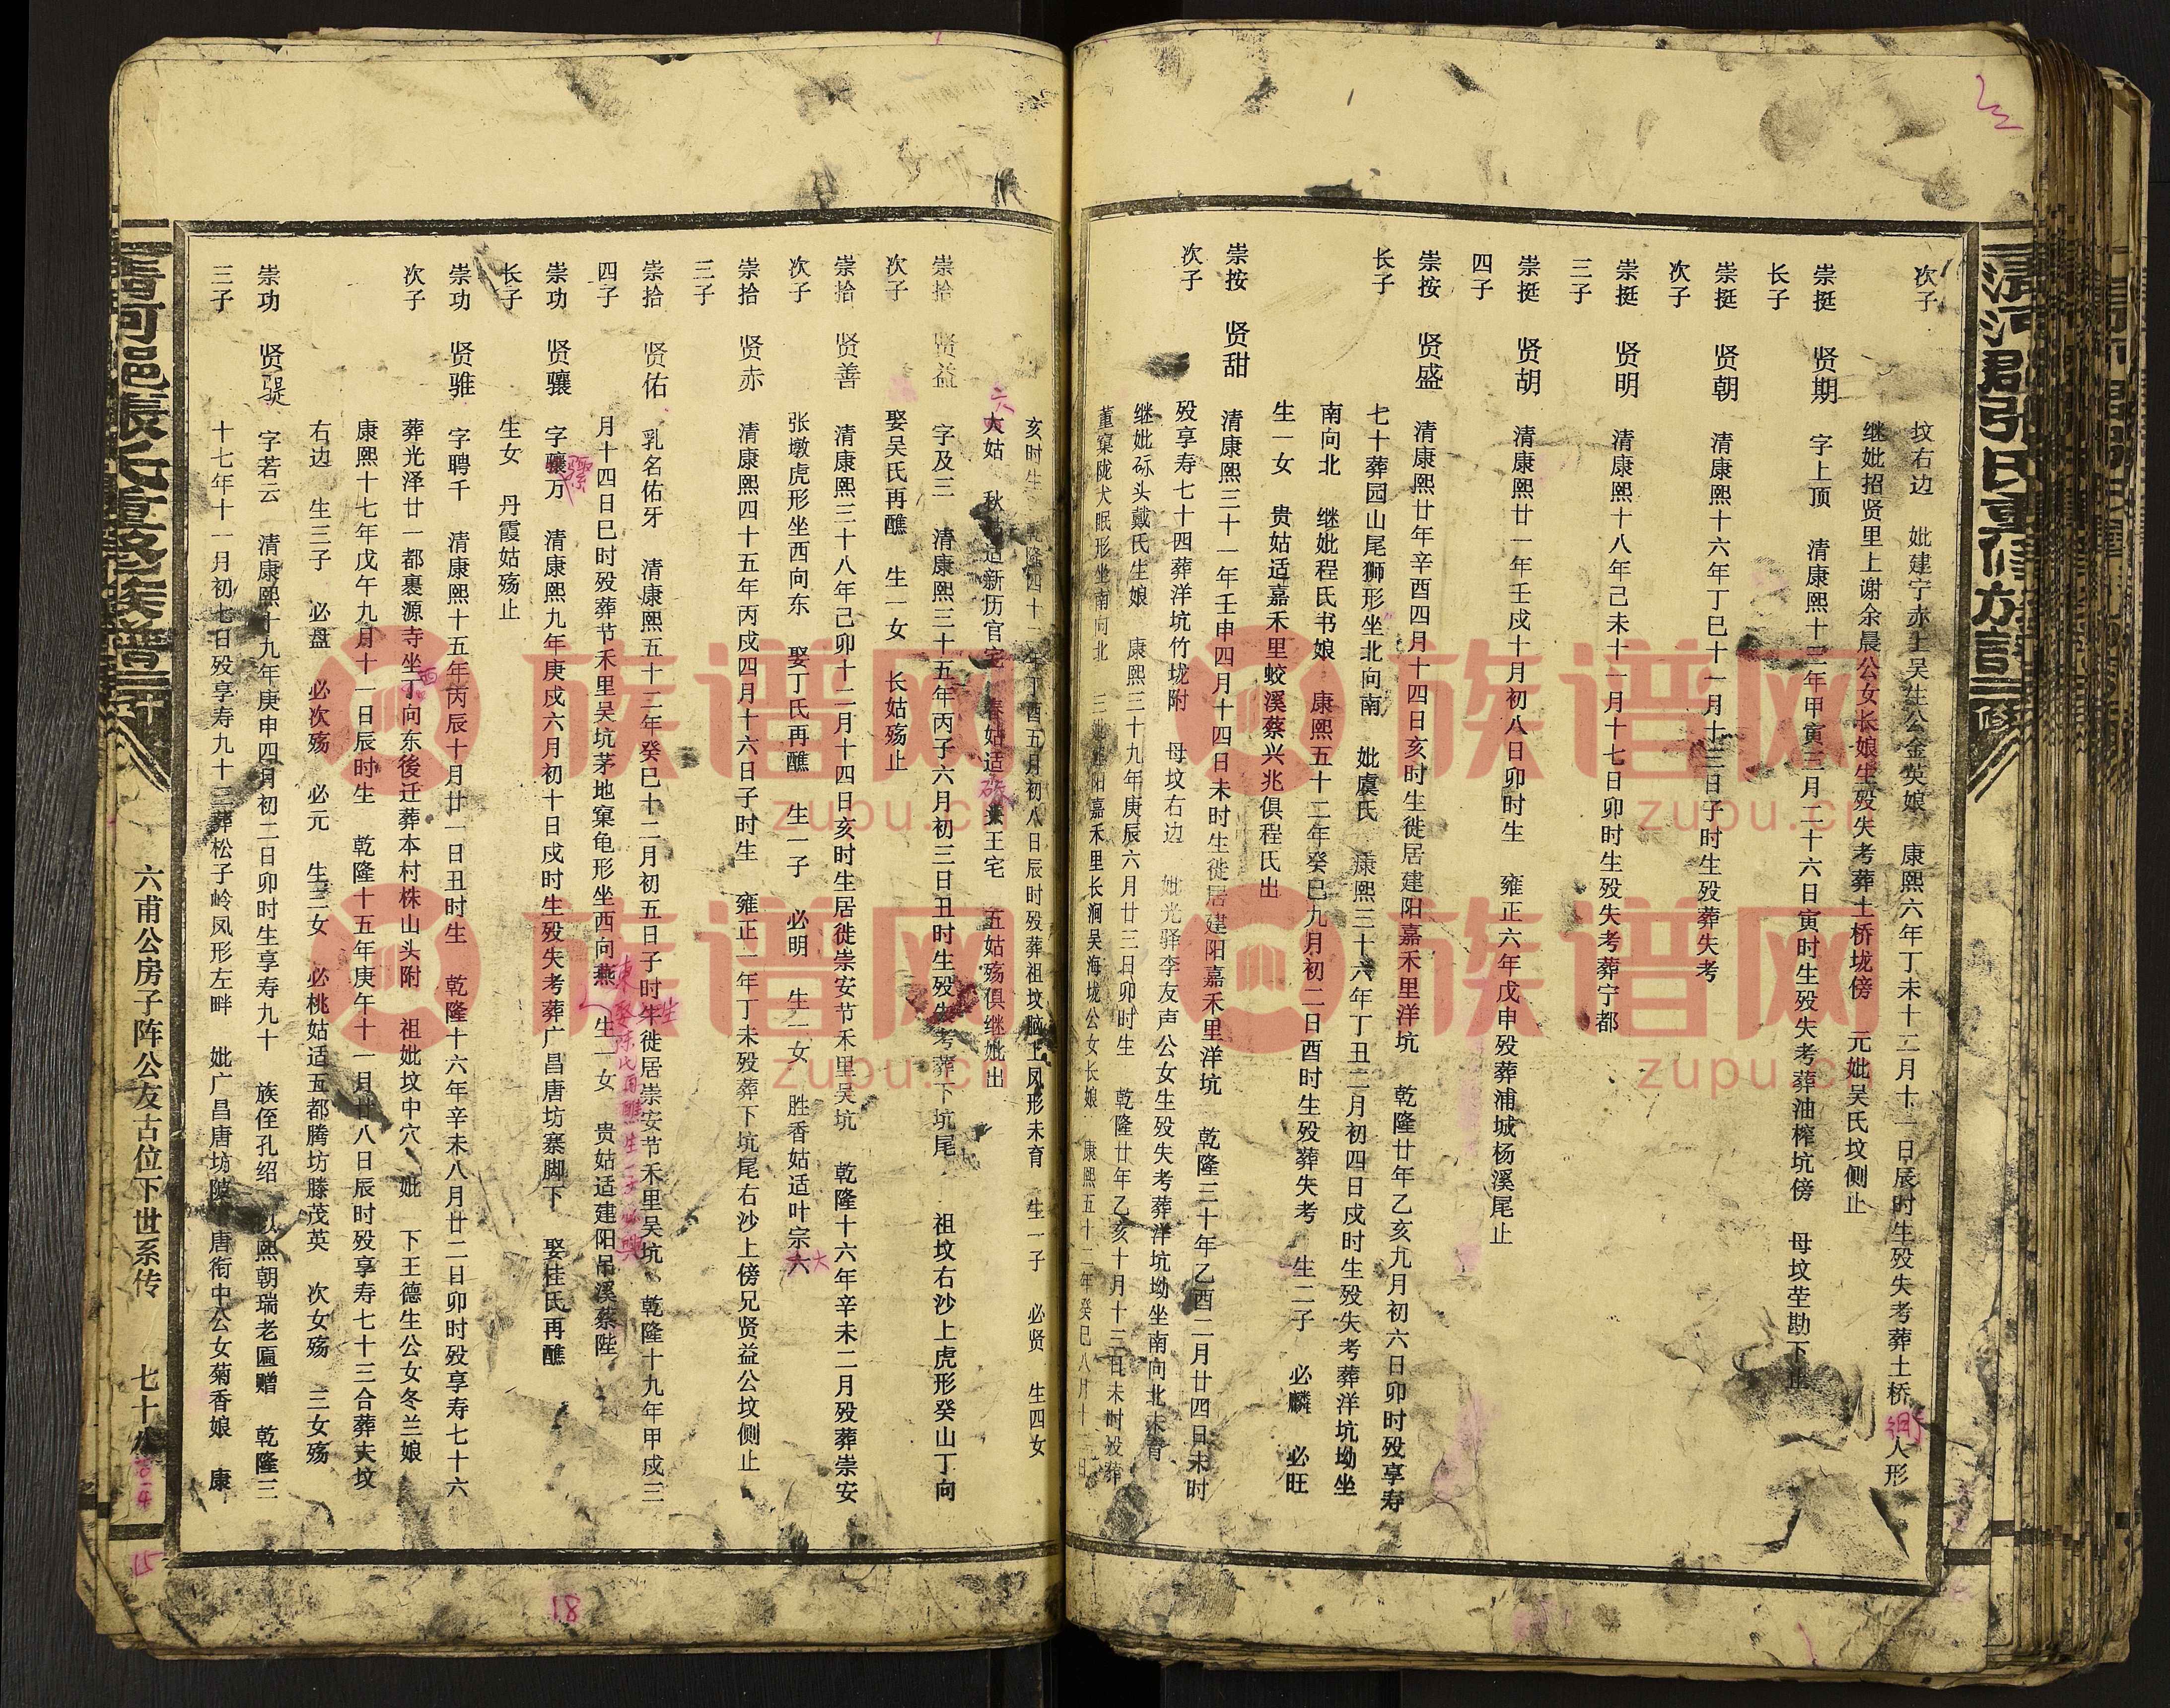 清河郡张氏重修族谱三修
次子
坟右边 妣建宁赤上吴生公金英娘 康熙六年丁未十二月十一日辰时生殁失考葬土桥 人形
继妣招贤里上谢余晨公女长娘生殁失考葬土桥垅傍 元妣吴氏坟侧止
崇挺 贤期 字上顶 清康熙十三年甲寅三月二十六日寅时生殁失考葬油榨坑傍 母坟茔勘下止
长子
崇挺 贤朝 清康熙十六年丁巳十一月十三日子时生殁葬失考
次子
崇挺 贤明 清康熙十八年己未十一月十七日卯时生殁失考葬宁都
三子
崇挺 贤胡 清康熙廿一年壬戌十月初八日卯时生 雍正六年戊申殁葬浦城杨溪尾止
四子
崇按 贤盛 清康熙廿年辛酉四月十四日亥时生徙居建阳嘉禾里洋坑 乾隆廿年乙亥九月初六日卯时殁享寿
长子
七十葬园山尾狮形坐北向南 妣虞氏 康熙三十六年丁丑二月初四日戌时生殁失考葬洋坑坳坐
南向北 继妣程氏书娘 康熙五十二年癸巳九月初二日酉时生殁葬失考 生二子 必麟 必旺
生一女 贵姑适嘉禾里蛟溪蔡兴兆俱程氏出
崇按 贤甜 清康熙三十一年壬申四月十四日未时生徙居建阳嘉禾里洋坑 乾隆三十年乙酉二月廿四日未时
次子
殁享寿七十四葬洋坑竹垅附 母坟右边 妣光驿李友声公女生殁失考葬洋坑坳坐南向北未育
继妣砾头戴氏生娘 康熙三十九年庚辰六月廿三日卯时生 乾隆廿年乙亥十月十三日未时殁葬
董窠陇犬眠形坐南向北 三妣建阳嘉禾里长涧吴海垅公女长娘 康熙五十二年癸巳八月十二日
亥时生 乾隆四十一年丁酉五月初八日辰时殁葬祖坟脑上凤形未育 生一子 必贤 生四女
六
大姑 秋姑适新历官宅 春姑适砾头王宅 五姑殇俱继妣出
崇拾 贤益 字及三 清康熙三十五年丙子六月初三日丑时生殁失考葬下坑尾 祖坟右沙上虎形癸山丁向
次子
娶吴氏再醮 生一女 长姑殇止
崇拾 贤善 清康熙三十八年己卯十二月十四日亥时生居徙崇安节禾里吴坑 乾隆十六年辛未二月殁葬崇安
次子
张墩虎形坐西向东 娶丁氏再醮 生一子 必明 生一女 胜香姑适叶宗六
大
崇拾 贤赤 清康熙四十五年丙戌四月十六日子时生 雍正一年丁未殁葬下坑尾右沙上傍兄贤益公坟侧止
三子
崇拾 贤佑 乳名佑牙 清康熙五十二年癸巳十二月初五日子时年徙居崇安节禾里吴坑 乾隆十九年甲戌三
生
四子
月十四日巳时殁葬节禾里吴坑茅地窠龟形坐西向燕 生一女 贵姑适建阳吊溪蔡陛
东 娶陈氏再醮生一子必兴
崇功 贤骧 字骧万 清康熙九年庚戌六月初十日戌时生殁失考葬广昌唐坊寨脚下 娶桂氏再醮
长子
生女 丹霞姑殇止
崇功 贤骓 字聘千 清康熙十五年丙辰十月廿一日丑时生 乾隆十六年辛未八月廿二日卯时殁享寿七十六
次子
葬光泽廿一都裹源寺坐丁向东後迁葬本村株山头附 祖妣坟中穴 妣 下王德生公女冬兰娘
西
康熙十七年戊午九月十一日辰时生 乾隆十五年庚午十一月廿八日辰时殁享寿七十三合葬夫坟
右边 生三子 必盘 必次殇 必元 生三女 必桃姑适五都腾坊滕茂英 次女殇 三女殇
崇功 贤骎 字若云 清康熙十九年庚申四月初二日卯时生享寿九十 族侄孔绍 以熙朝瑞老匾赠 乾隆三
三子
十七年十一月初七日殁享寿九十三葬松子岭凤形左畔 妣广昌唐坊陂 唐衔中公女菊香娘 康
清河郡张氏重修族谱三修
六甫公房子阵公友古位下世系传 七十八
15
18